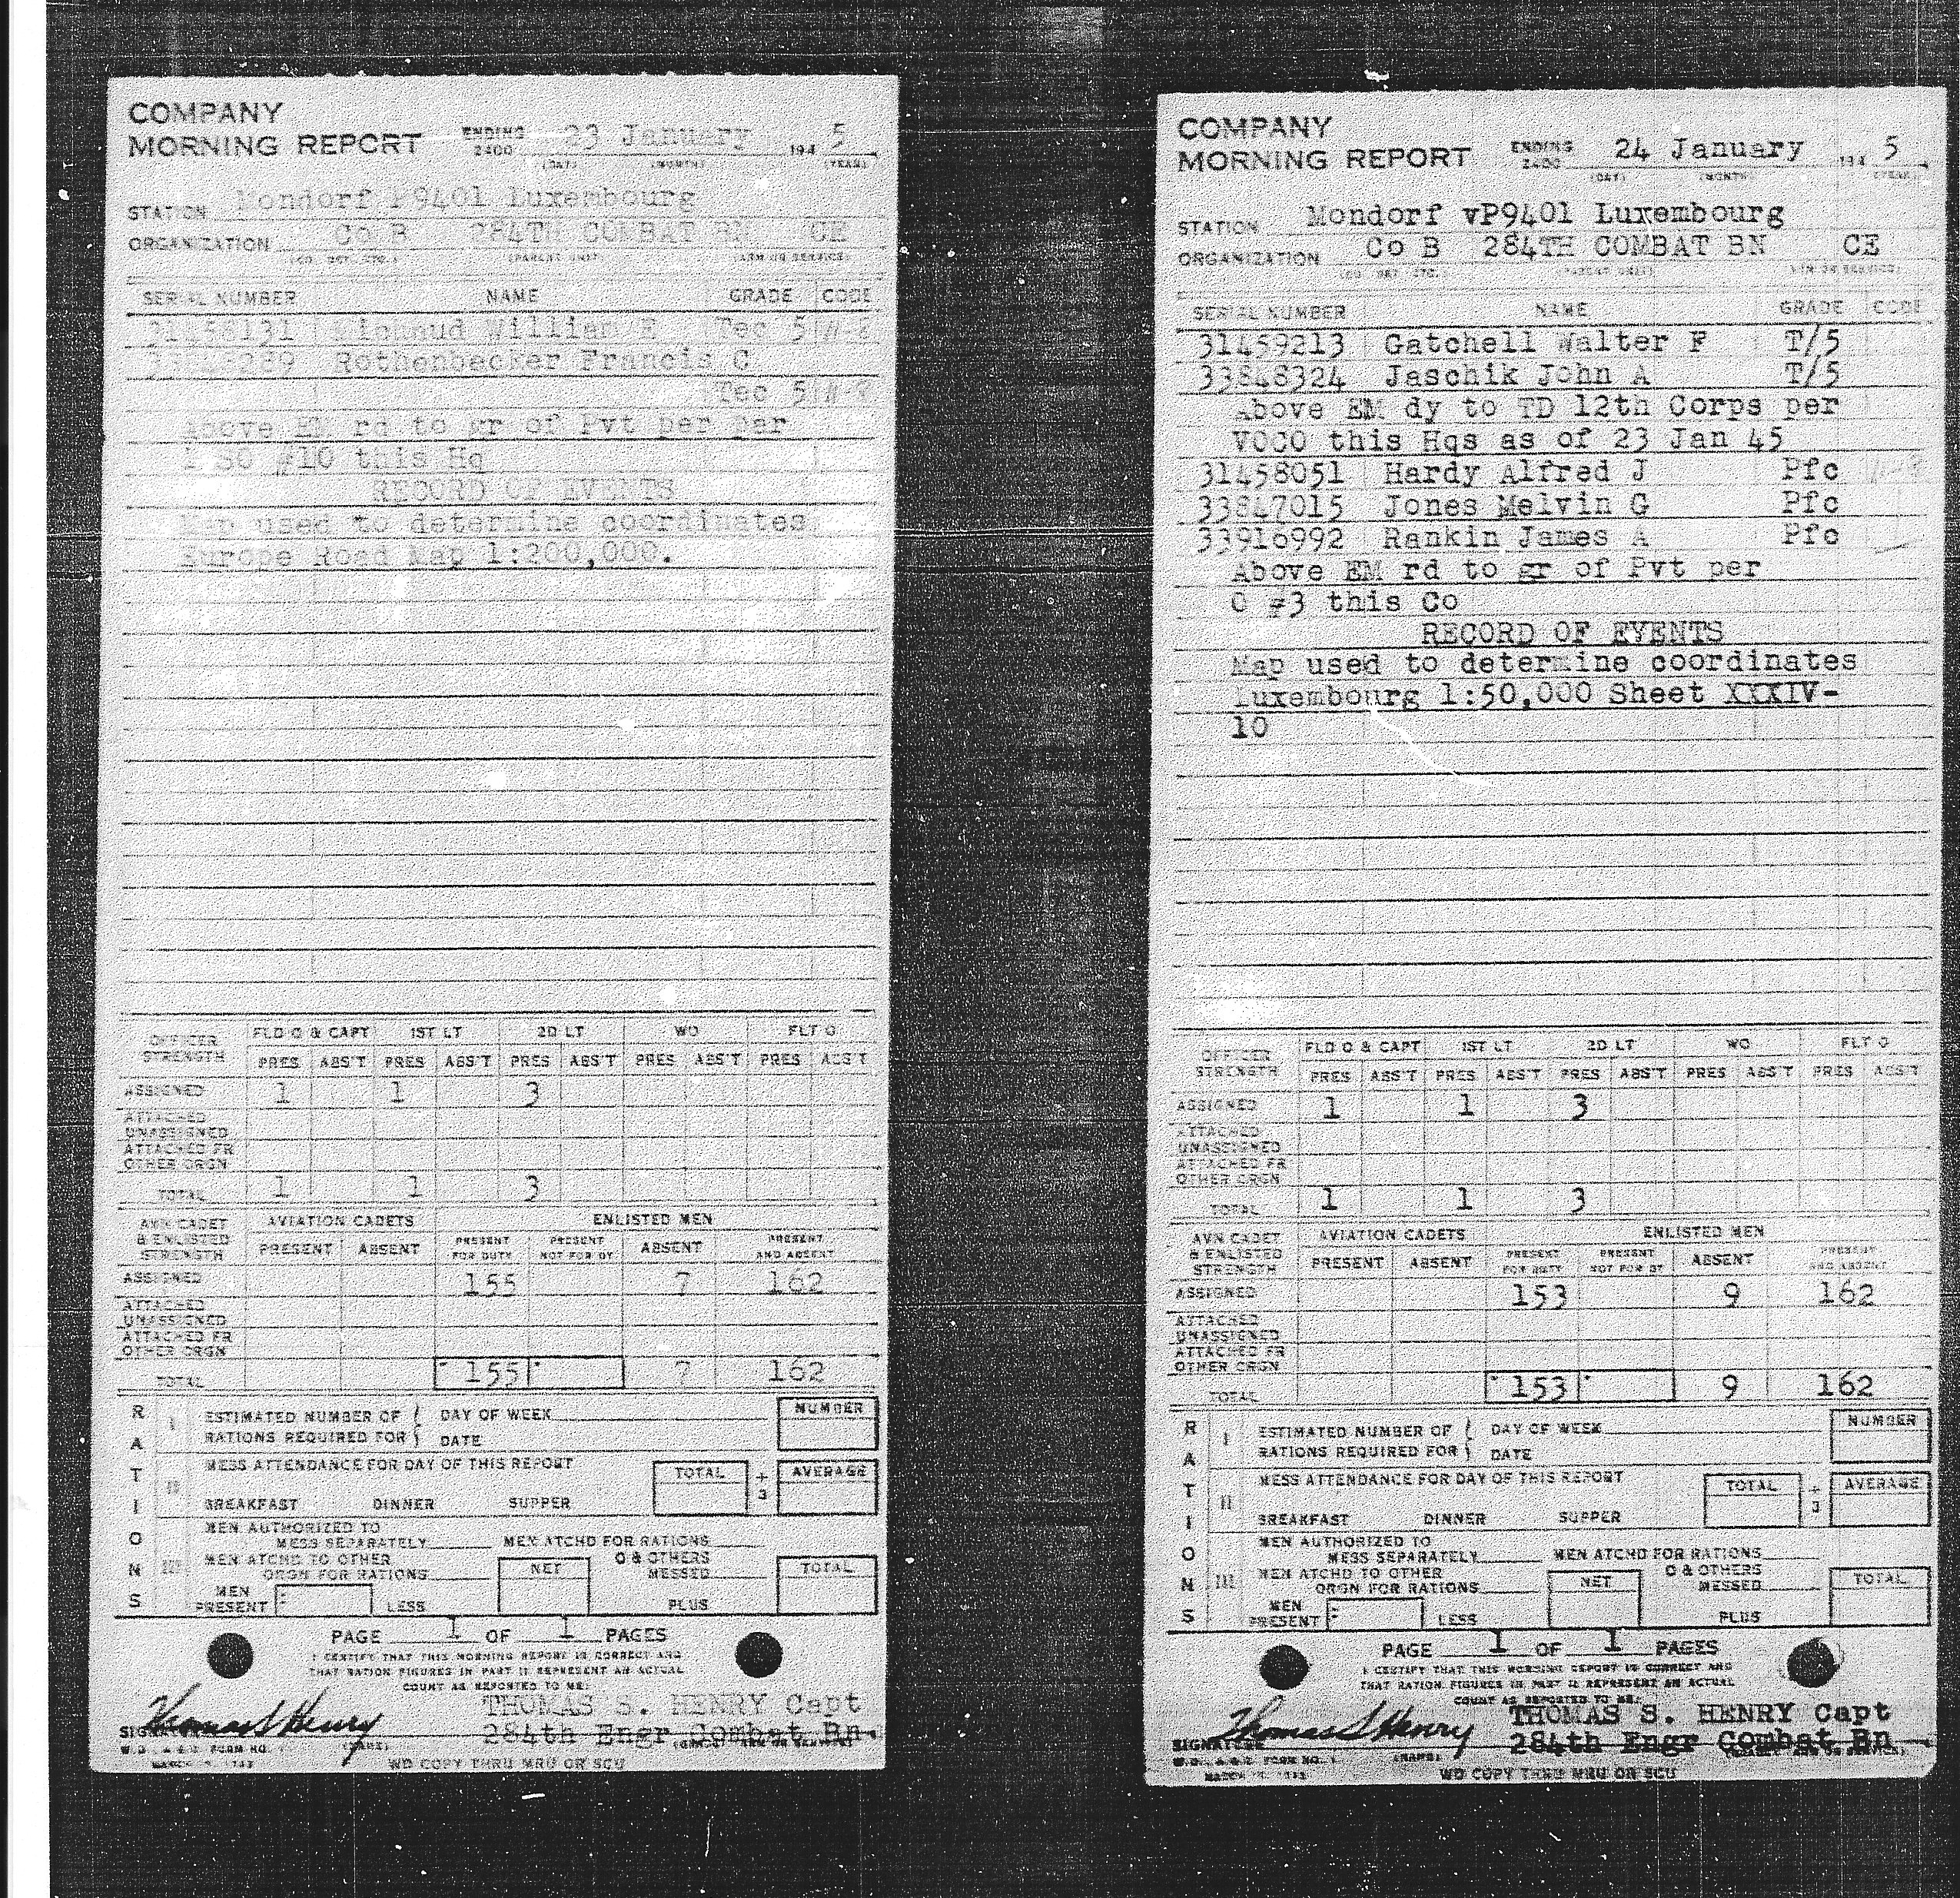 COMPANY
MORNING REPORT ENDING 2400 23 January 194 5
(DAY) (MONTH) (YEAR)
STATION Mondorf P9401 Luxembourg
ORGANIZATION Co B 284TH COMBAT BN CE
(PARENT UNIT) (ARM OR SERVICE)
SERIAL NUMBER NAME GRADE CODE
William E Tec 5
Rothenbecker Francis C
Tec 5
Above EM rd to gr of Pvt per par
1 SO #10 this Hq
RECORD OF EVENTS
Map used to determine coordinates
Europe Road Map 1:200,000.
OFFICER STRENGTH FLD O & CAPT 1ST LT 2D LT WO FLT O
PRES ABS'T PRES ABS'T PRES ABS'T PRES ABS'T PRES ABS'T
ASSIGNED 1 1 3
ATTACHED UNASSIGNED
ATTACHED FR OTHER ORGN
TOTAL 1 1 3
AVN CADET & ENLISTED STRENGTH AVIATION CADETS ENLISTED MEN
PRESENT ABSENT PRESENT FOR DUTY PRESENT NOT FOR DY ABSENT PRESENT AND ABSENT
ASSIGNED 155 7 162
ATTACHED UNASSIGNED
ATTACHED FR OTHER ORGN
TOTAL 155 7 162
RATIONS
I ESTIMATED NUMBER OF RATIONS REQUIRED FOR DAY OF WEEK DATE NUMBER
II MESS ATTENDANCE FOR DAY OF THIS REPORT TOTAL ÷ 3 AVERAGE
BREAKFAST DINNER SUPPER
III MEN AUTHORIZED TO MESS SEPARATELY MEN ATCHD FOR RATIONS
MEN ATCHD TO OTHER ORGN FOR RATIONS NET O & OTHERS MESSED TOTAL
MEN PRESENT LESS PLUS
PAGE 1 OF 1 PAGES
I CERTIFY THAT THIS MORNING REPORT IS CORRECT AND
THAT RATION FIGURES IN PART II REPRESENT AN ACTUAL
COUNT AS REPORTED TO ME:
Thomas S Henry THOMAS S. HENRY Capt
SIGNATURE 284th Engr Combat Bn
W.D., A.G.O. FORM NO. 1 (NAME)
WD COPY THRU MRU OR SCU
COMPANY
MORNING REPORT ENDING 2400 24 January 194 5
(DAY) (MONTH) (YEAR)
STATION Mondorf vP9401 Luxembourg
ORGANIZATION Co B 284TH COMBAT BN CE
(PARENT UNIT) (ARM OR SERVICE)
SERIAL NUMBER NAME GRADE CODE
31459213 Gatchell Walter F T/5
33848324 Jaschik John A T/5
Above EM dy to TD 12th Corps per
VOCO this Hqs as of 23 Jan 45
31458051 Hardy Alfred J Pfc
33847015 Jones Melvin G Pfc
33916992 Rankin James A Pfc
Above EM rd to gr of Pvt per
O #3 this Co
RECORD OF EVENTS
Map used to determine coordinates
Luxembourg 1:50,000 Sheet XXXIV-
10
OFFICER STRENGTH FLD O & CAPT 1ST LT 2D LT WO FLT O
PRES ABS'T PRES ABS'T PRES ABS'T PRES ABS'T PRES ABS'T
ASSIGNED 1 1 3
ATTACHED UNASSIGNED
ATTACHED FR OTHER ORGN
TOTAL 1 1 3
AVN CADET & ENLISTED STRENGTH AVIATION CADETS ENLISTED MEN
PRESENT ABSENT PRESENT FOR DUTY PRESENT NOT FOR DY ABSENT PRESENT AND ABSENT
ASSIGNED 153 9 162
ATTACHED UNASSIGNED
ATTACHED FR OTHER ORGN
TOTAL 153 9 162
RATIONS
I ESTIMATED NUMBER OF RATIONS REQUIRED FOR DAY OF WEEK DATE NUMBER
II MESS ATTENDANCE FOR DAY OF THIS REPORT TOTAL ÷ 3 AVERAGE
BREAKFAST DINNER SUPPER
III MEN AUTHORIZED TO MESS SEPARATELY MEN ATCHD FOR RATIONS
MEN ATCHD TO OTHER ORGN FOR RATIONS NET O & OTHERS MESSED TOTAL
MEN PRESENT LESS PLUS
PAGE 1 OF 1 PAGES
I CERTIFY THAT THIS MORNING REPORT IS CORRECT AND
THAT RATION FIGURES IN PART II REPRESENT AN ACTUAL
COUNT AS REPORTED TO ME:
Thomas S Henry THOMAS S. HENRY Capt
SIGNATURE 284th Engr Combat Bn
W.D., A.G.O. FORM NO. 1 (NAME)
WD COPY THRU MRU OR SCU